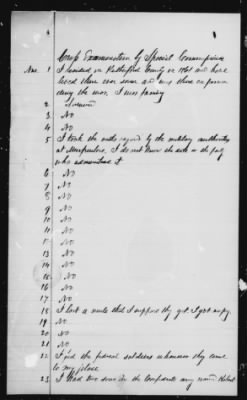 Cross Examination by Special Commissioner
Nov. 1 I landed in Rutherford County in 1801 and have
lived there ever since and was there
during the war. I was
2 Answered
3 No
4 No
5 I took the oath required by the military authorities
at Murfreesboro, I do not know the date or the party
who administered it
6 No
7 No
8 No
9 No
10 No
11 No
12 No
13 No
14 No
15 No
16 No
17 No
18 I lost a mule that I suppose they got I got no pay.
19 No
20 No
21 No
22 I fed the federal soldiers whenever they came
to my place
23 I had two sons in the Confederate army named Robert